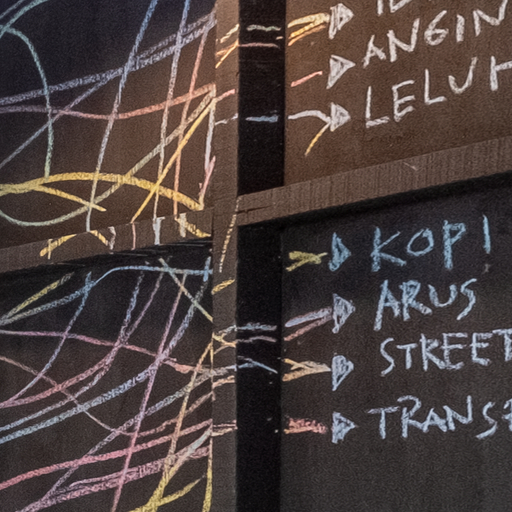 ANGIN
LELUH
KOPI
ARUS
STREET
TRANSF